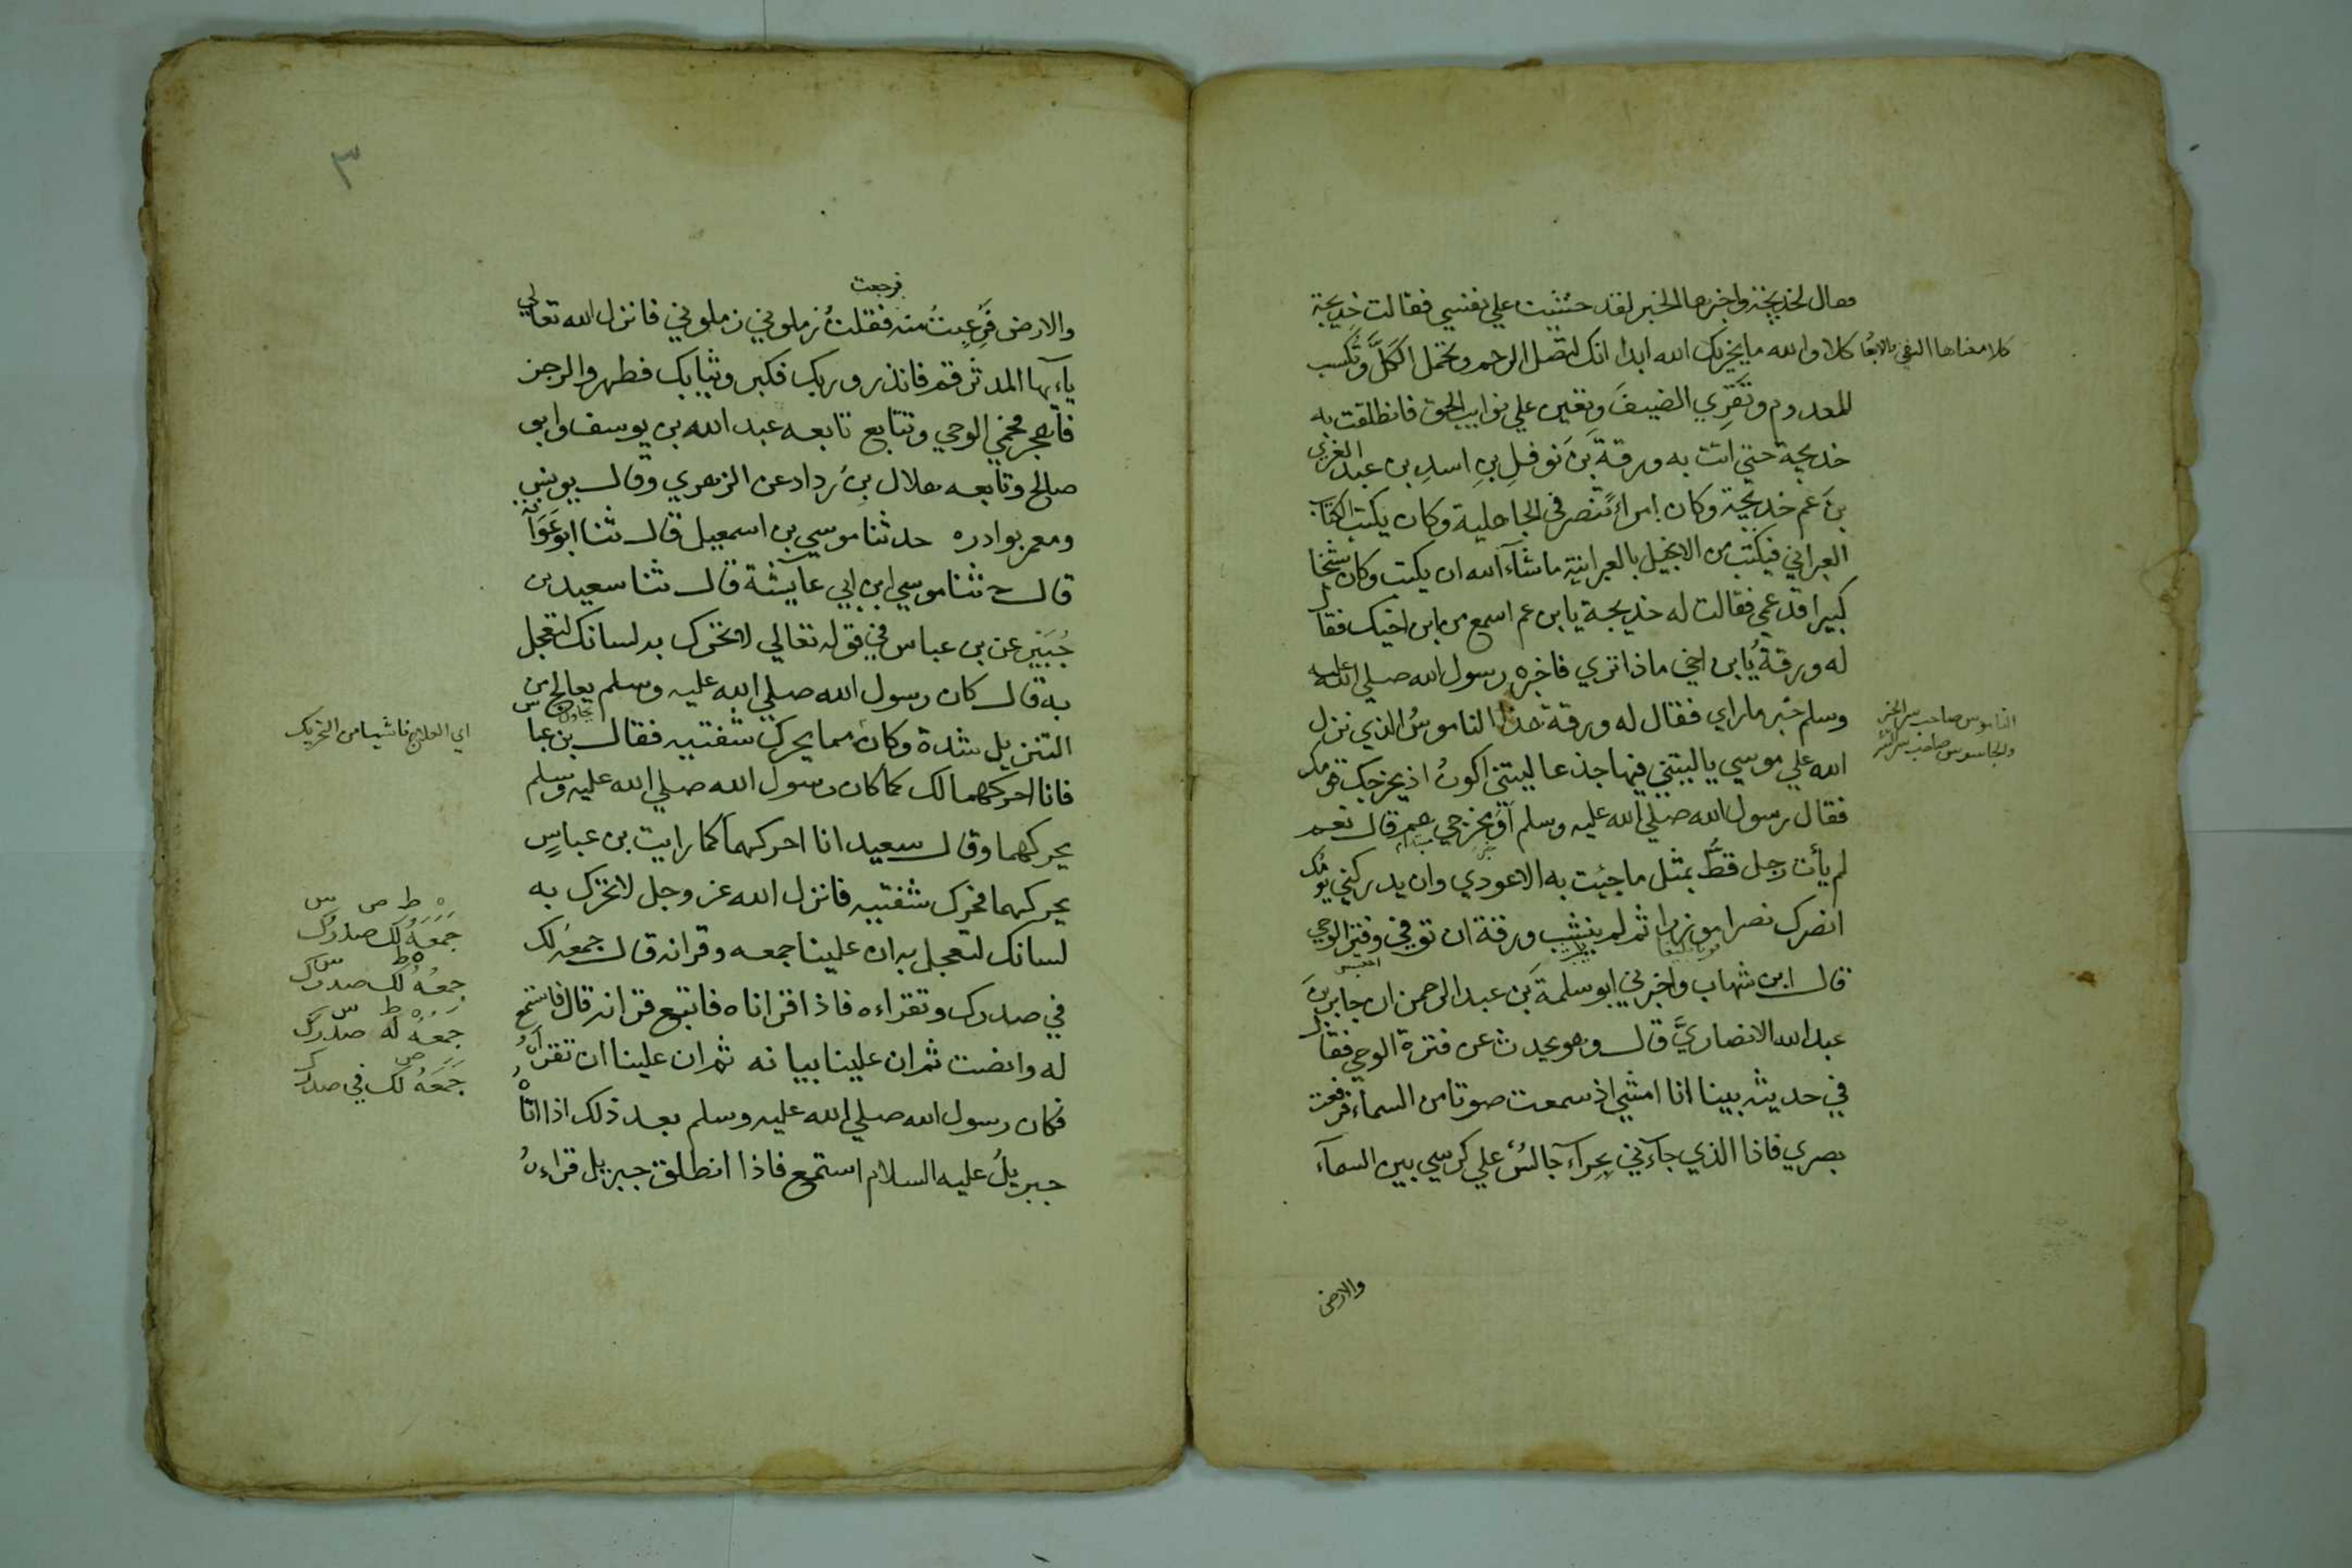 فقال لخديجة واخبرها الخبر لقد خشيت علي نفسي فقالت خديجة
كلا والله ما يخزيك الله ابدا انك لتصل الرحم وتحمل الكَلَّ وتُكسب
المعدوم وتَقرِي الضيفَ وتعين علي نوايب الحق فانطلقت به
خديجة حتي اتت به ورقةَ بنَ نَوفلِ بنِ اسدِ بن عبد العزي
بنَ عم خديجة وكان امرأً تنصر في الجاهلية وكان يكتب الكتاب
العبراني فيكتب من الانجيل بالعبرانية ما شآء الله ان يكتب وكان شيخا
كبيرا قد عمي فقالت له خديجة يا بن عم اسمع من بن اخيك فقال
له ورقةُ يا بن اخي ماذا تري فاخبره رسول الله صلي الله عليه
وسلم خبر ما راي فقال له ورقة هذا الناموسُ الذي نزل
الله علي موسي يا ليتني فيها جذعا ليتني اكونُ اذ يخرجك قومك
فقال رسول الله صلي الله عليه وسلم اَوَ مخرجي هم قال نعم
لم يأت رجل قطُّ بمثل ما جئت به الا عودي وان يدركني يومُك
انصرك نصرا موزرا ثم لم ينشب ورقة ان توفي وفتر الوحي
قال ابن شهاب واخبرني ابو سلمةَ بن عبد الرحمن ان جابر بنَ
عبد الله الانصاريَّ قال وهو يحدث عن فترة الوحي فقال
في حديثه بينا انا امشي اذ سمعت صوتا من السماء فرفعت
بصري فاذا الذي جآءني بحِرآء جالسٌ علي كرسي بين السمآء
والارض
كلا معناها النفي والابعاد
الناموس صاحب سر الخير
والجاسوس صاحب سر الشر
٣
فرجعت
والارض فَرُعِبتُ منه فقلتُ زملوني زملوني فانزل الله تعالي
يآءيها المدثر قم فانذر وربك فكبر وثيابك فطهر والرجز
فاهجر فحمي الوحي وتتابع تابعه عبد الله بن يوسف وابو
صالح وتابعه هلال بن رداد عن الزهري وقال يونس
ومعمر بوادره حدثنا موسي بن اسمعيل قال ثنا ابو عَوَانة
قال ثنا موسي ابن ابي عآيشة قال ثنا سعيد بن
جُبَيْرٍ عن بن عباس في قوله تعالي لا تحرك به لسانك لتعجل
به قال كان رسول الله صلي الله عليه وسلم يعالج من
التنزيل شدة وكان مما يحرك شفتيه فقال بن عباس
فانا احركهما لك كما كان رسول الله صلي الله عليه وسلم
يحركهما وقال سعيد انا احركهما كما رايت بن عباسٍ
يحركهما فحرك شفتيه فانزل الله عز وجل لا تحرك به
لسانك لتعجل به ان علينا جمعه وقرانه قال جمعهُ لك
في صدرك وتقراءه فاذا قراناه فاتبع قرانه قال فاستمع
له وانصت ثم ان علينا بيانه ثم ان علينا ان تقرأهُ
فكان رسول الله صلي الله عليه وسلم بعد ذلك اذا اتاه
جبريلُ عليه السلام استمع فاذا انطلق جبريل قراءهُ
اي العلاج ناشيا من التحريك
ه ط ص س
جَمَعَهُ لك صدرُك
ه ط س
جمعُهُ لك صدرك
ه ط س
جمعُهُ له صدرك
ص
جَمَعَهُ لك في صدرك